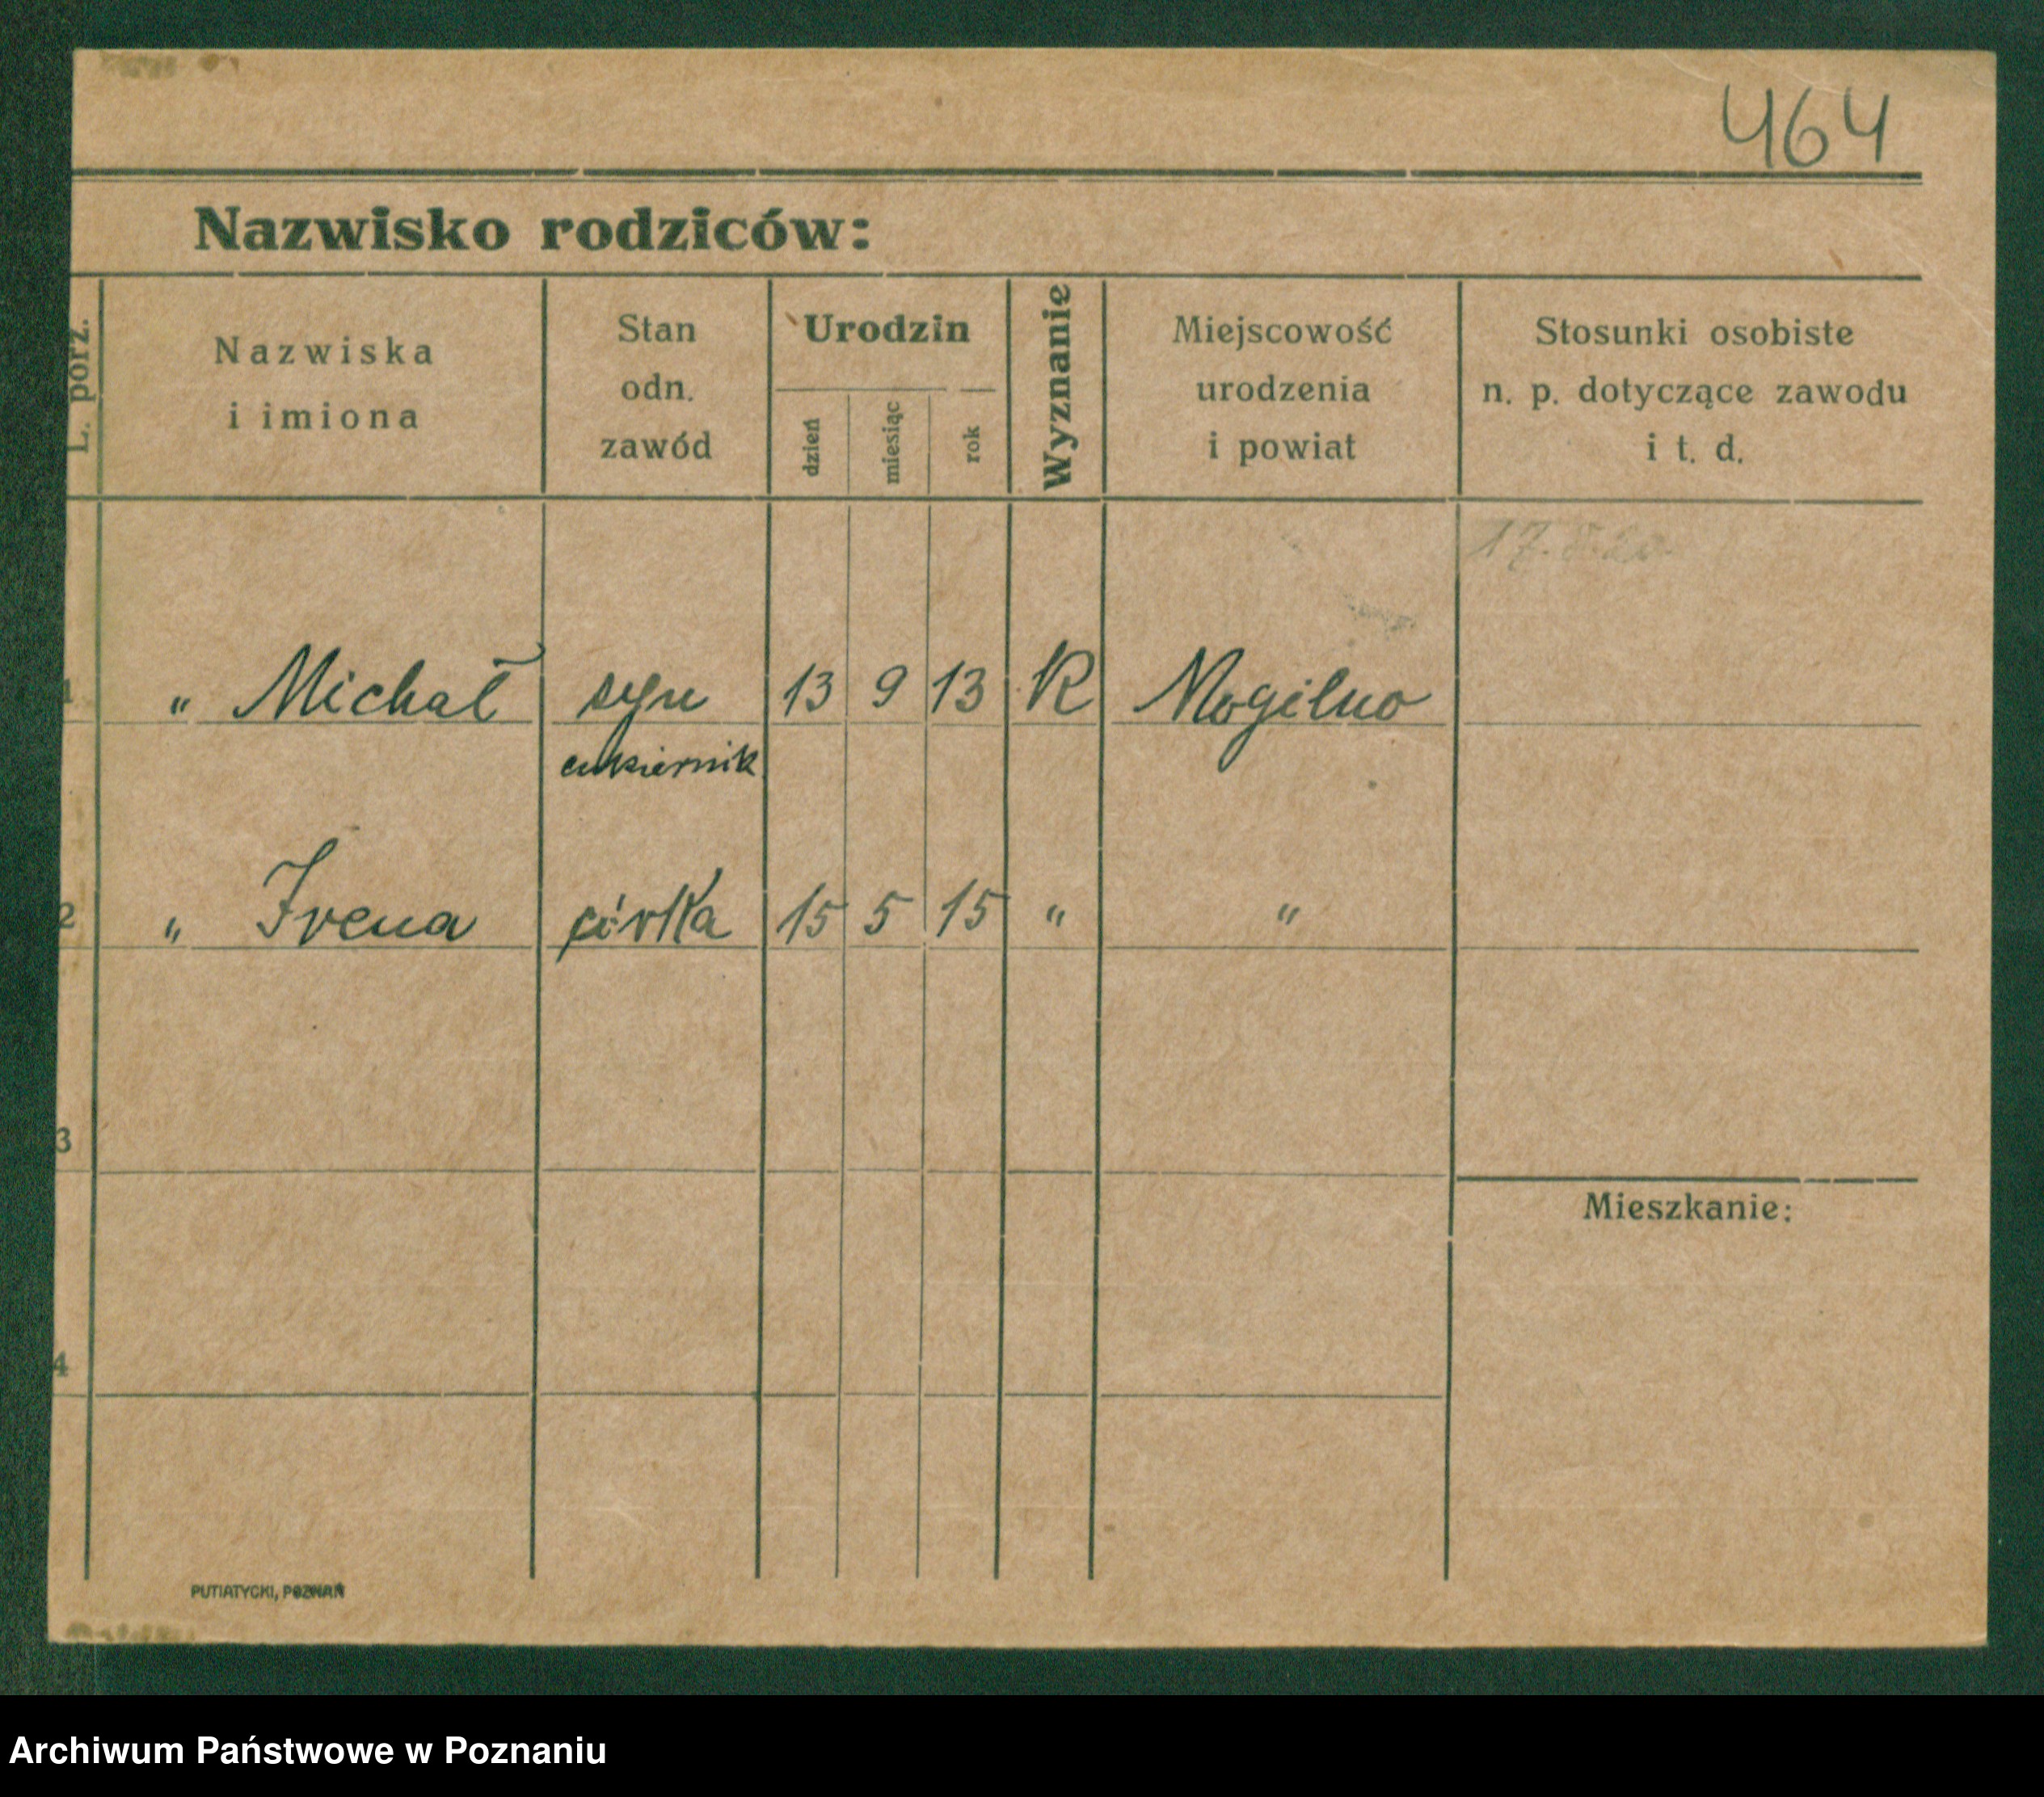 464
Nazwisko rodziców:
L. porz.
Nazwiska
i imiona
Stan
odn.
zawód
Urodzin
dzień
miesiąc
rok
Wyznanie
Miejscowość
urodzenia
i powiat
Stosunki osobiste
n. p. dotyczące zawodu
i t. d.
1 " Michał syn 13 9 13 K Mogilno
cukiernik
2 " Irena córka 15 5 15 " "
3
Mieszkanie:
4
PUTIATYCKI, POZNAŃ
Archiwum Państwowe w Poznaniu